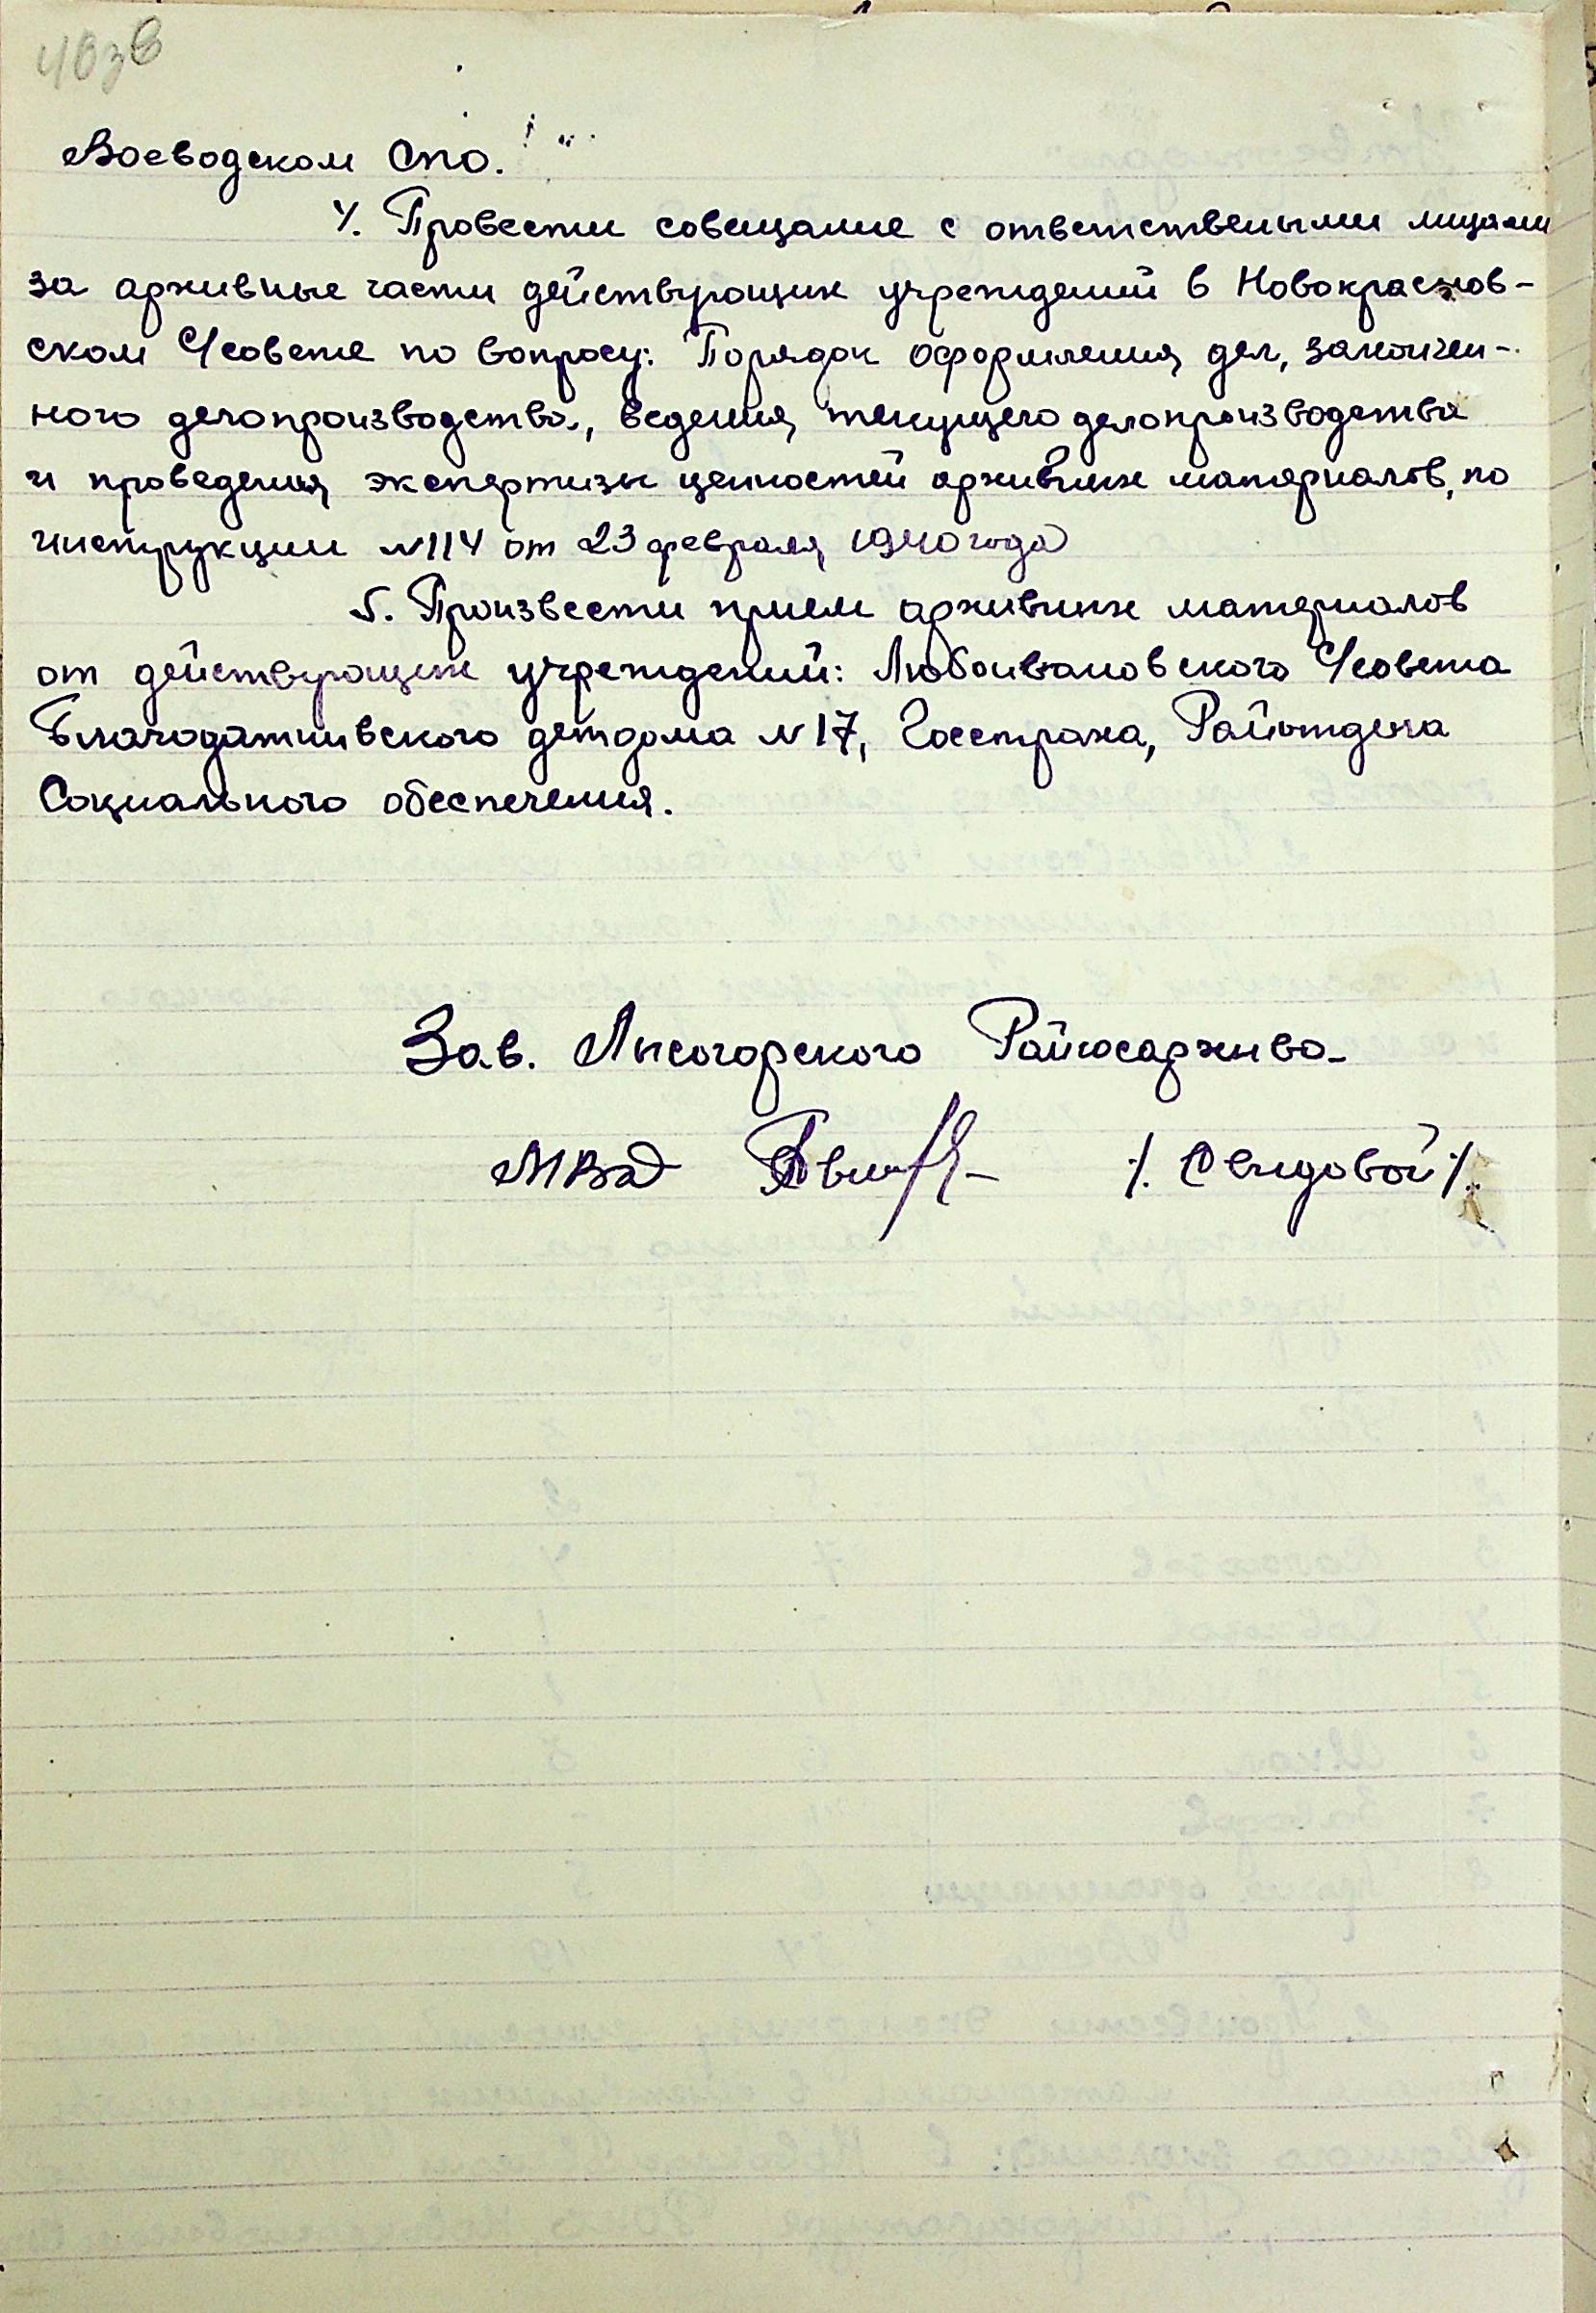 40зв
Воеводском Спо.
4. Провести совещание с ответствеными лицами
за архивные части действующих учреждений в Новокраснов-
ском С/совете по вопросу: Порядок оформления дел, закончен-
ного делопроизводства, ведения текущего делопроизводства
и проведения экспертизы ценностей архивных материалов, по
инструкции №114 от 23 февраля 1940 года
5. Произвести прием архивных материалов
от действующих учреждений: Любоивановского С/совета
Благодатнивского детдома №17, Госстраха, Райотдела
Социального обеспечения.
Зав. Лысогорского Райгосархива-
МВД /. Сендовой /.